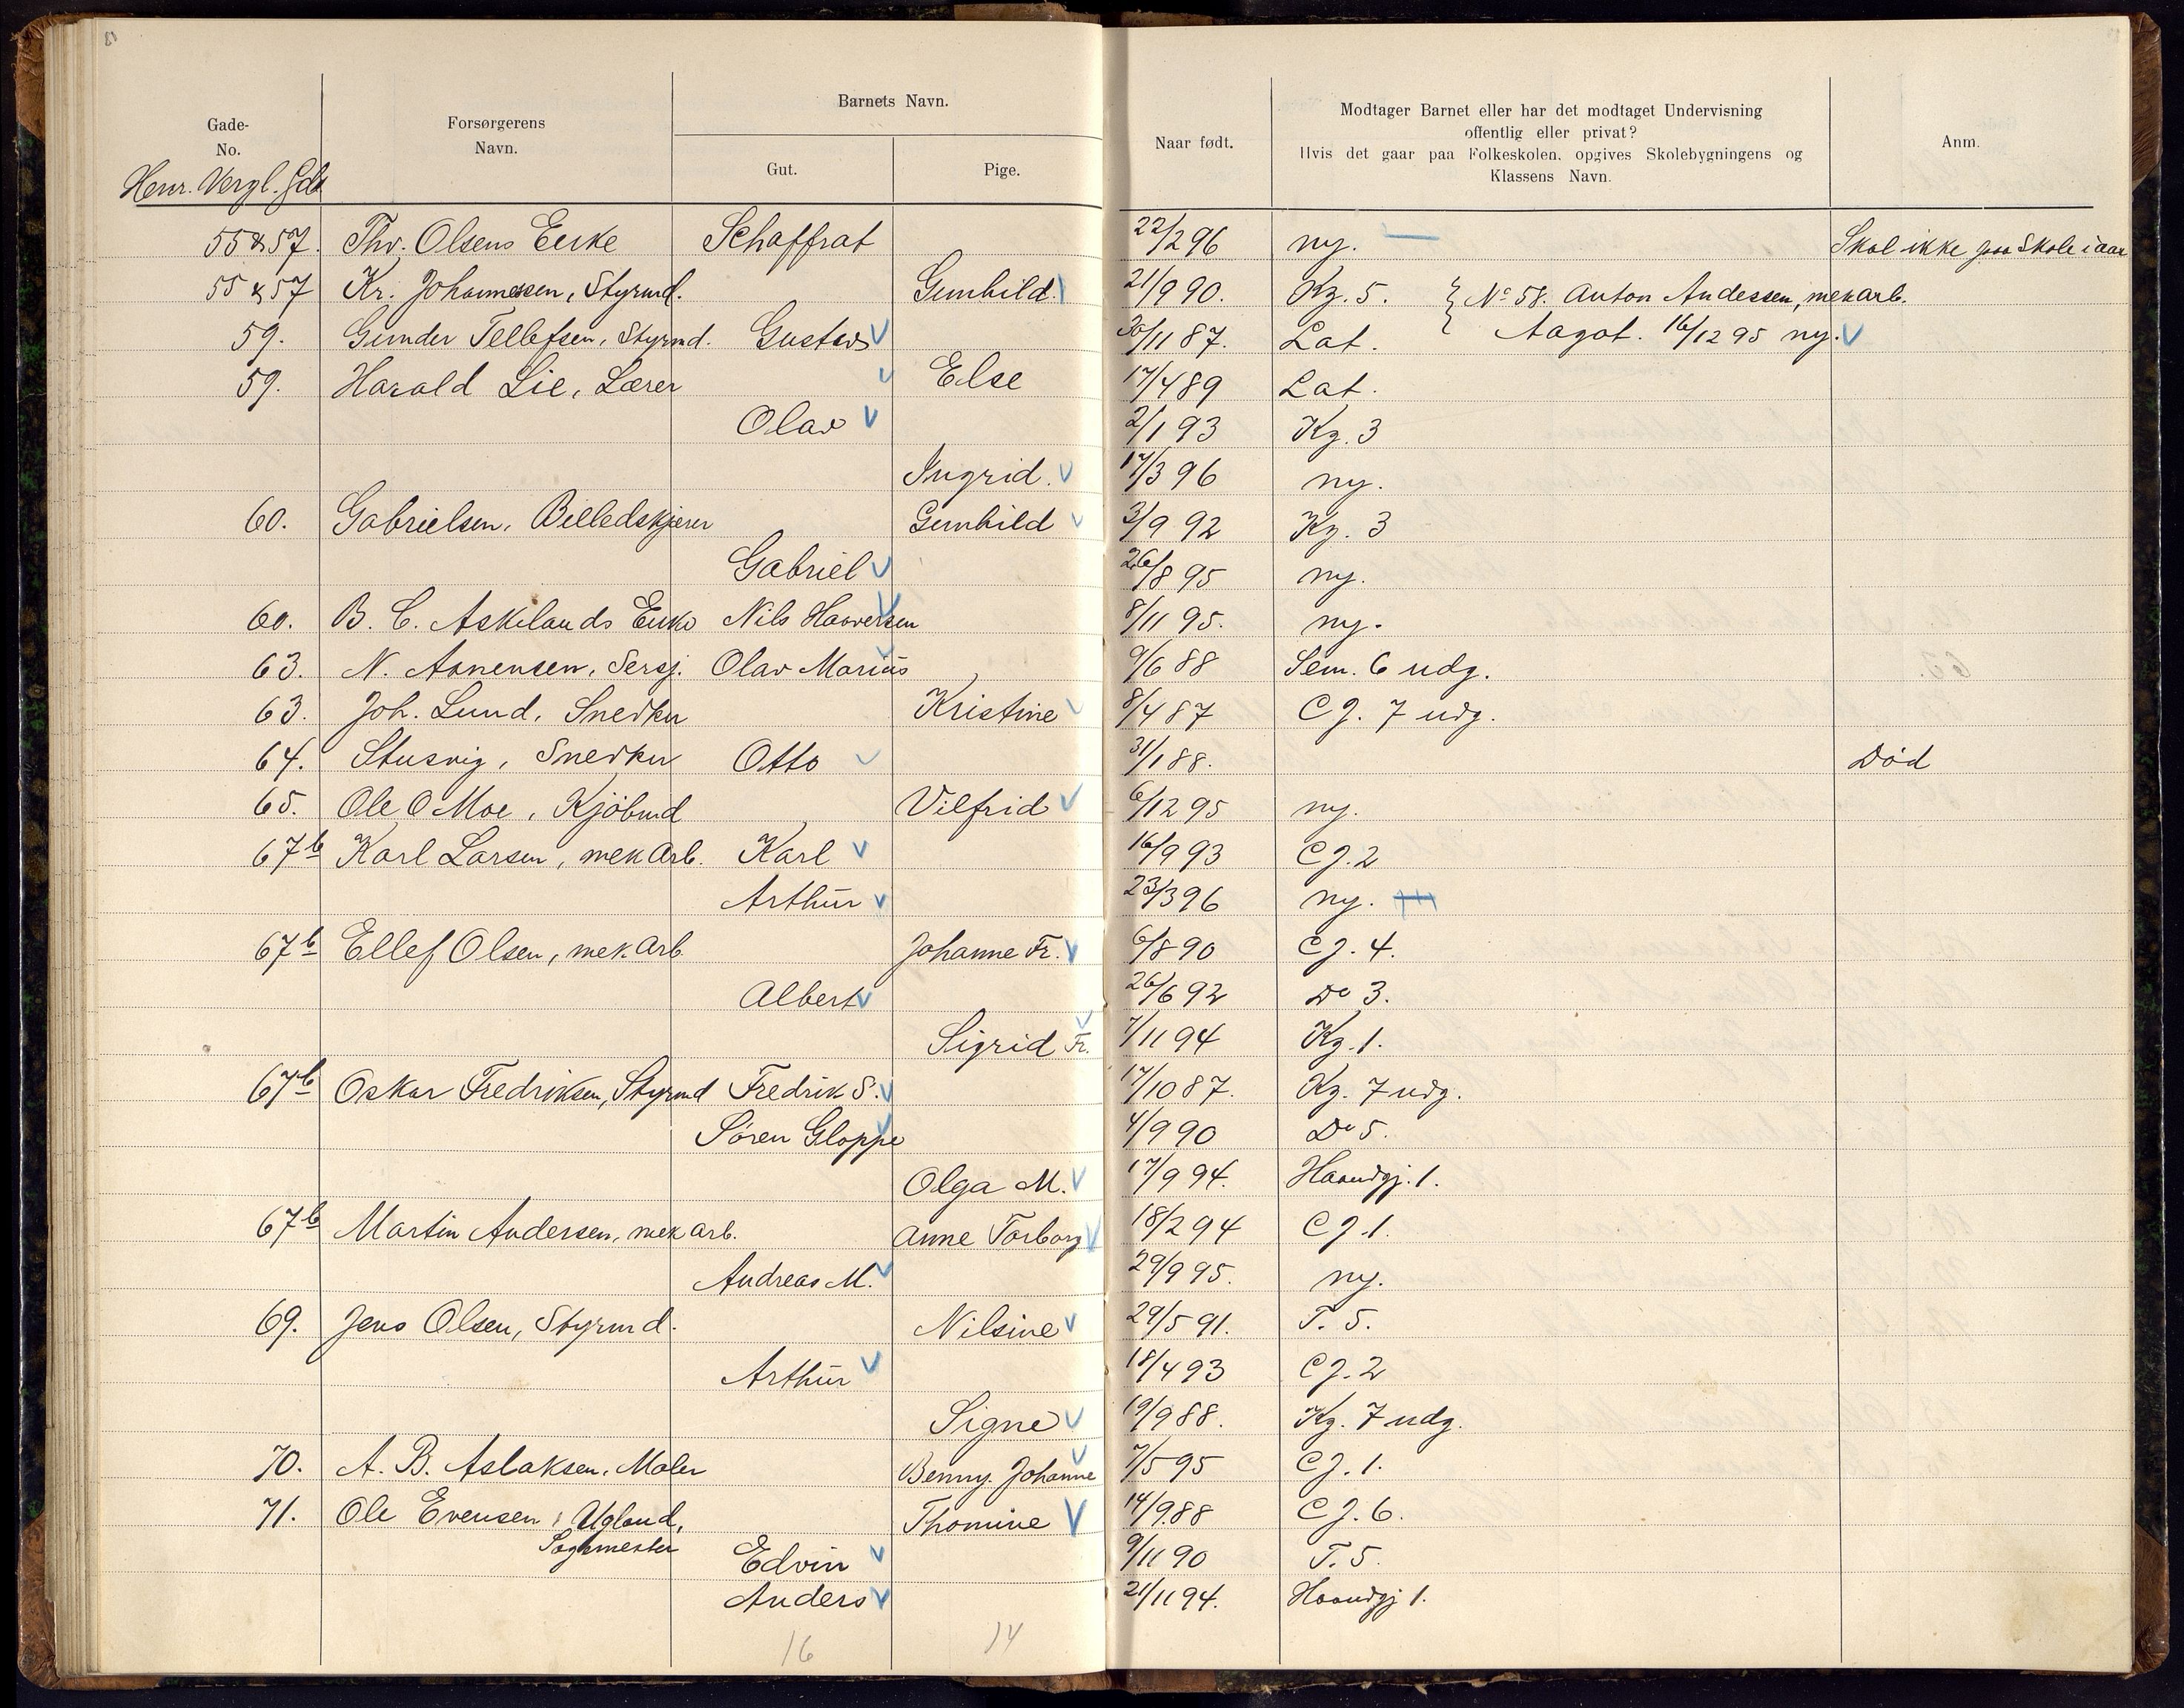 Gade-
No.
Forsørgerens
Navn.
Barnets Navn.
Gut.
Pige.
Naar født.
Modtager Barnet eller har det modtaget Undervisning
offentlig eller privat?
Hvis det gaar paa Folkeskolen, opgives Skolebygningens og
Klassens Navn.
Anm.
Henr. Vergl. Gde
55 & 57. Thv. Olsens Enke Schaffrat 22/2 96 ny. Skal ikke paa Skole i aar
55 & 57 Kr. Johannessen, Styrmd. Gunhild. 21/9 90. Kg. 5. } No 58. Anton Andessen, mek arb.
59. Gunder Tellefsen, Styrmd. Gustav 30/11 87. Lat. } Aagot. 16/12 95 ny.
59. Harald Lie, Lærer Else 17/4 89 Lat.
Olav 2/1 93 Kg. 3
Ingrid. 17/3 96 ny.
60. Gabrielsen, Billedskjærer Gunhild 3/9 92 Kg. 3
Gabriel 26/8 95 ny.
60. B. C. Askilands Enke Nils Haaversen 8/11 95. ny.
63. N. Asnensen, Sersj. Olav Marius 9/6 88 Sem. 6 udg.
63. Joh. Lund, Snedker Kristine 8/4 87 CJ. 7 udg.
64. Stusvig, Snedker Otto 31/1 88. Død
65. Ole O Moe, Kjøbmd Vilfrid 6/12 95 ny.
67b Karl Larsen, mek Arb. Karl 16/9 93 CJ. 2
Arthur 23/3 96 ny.
67b Ellef Olsen, mek. Arb. Johanne Fr. 6/8 90 CJ. 4.
Albert 26/6 92 Do 3.
Sigrid Fr. 7/11 94 Kg. 1.
67b Oskar Fredriksen, Styrmd Fredrik S. 17/10 87. Kg. 7 udg.
Søren Gloppe 4/9 90 Do 5.
Olga M. 17/9 94. Haandgj. 1.
67b Martin Andersen, mek arb. Anne Torborg 18/2 94 CJ. 1.
Andreas M. 29/9 95. ny.
69. Jens Olsen, Styrmd. Nilsine 29/5 91. T. 5.
Arthur 18/4 93 CJ. 2
Signe 19/9 88. Kg. 7 udg.
70. A. B. Aslaksen, Maler Benny Johanne 7/5 95 CJ. 1.
71. Ole Evensen Ugland, Thomine 14/9 88 CJ. 6.
Sagmester Edvin 9/11 90 T. 5.
Anders 21/11 94. Haandgj 1.
16 14